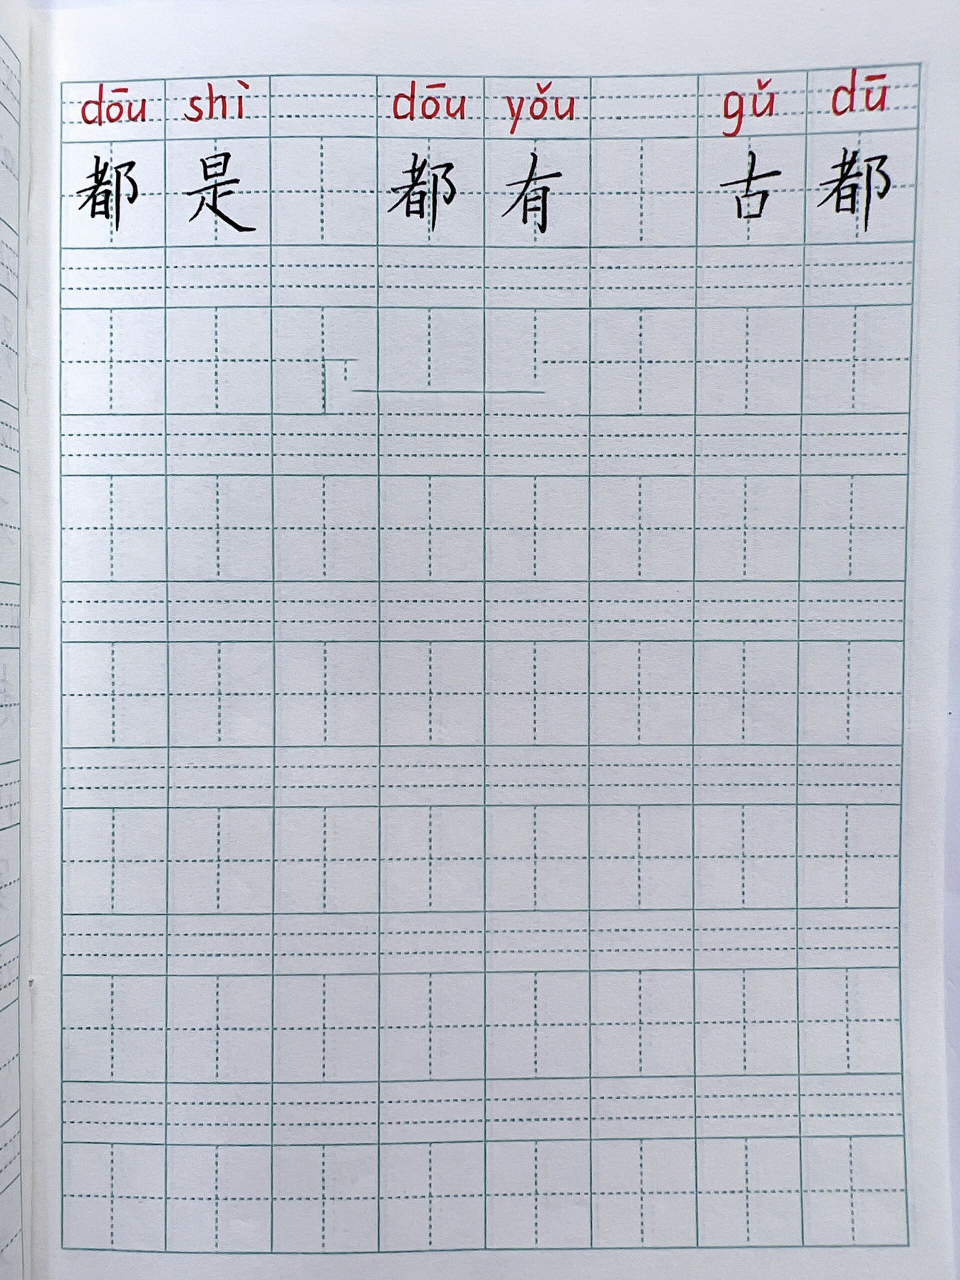 dōu shì dōu yǒu gǔ dū
都是 都有 古都